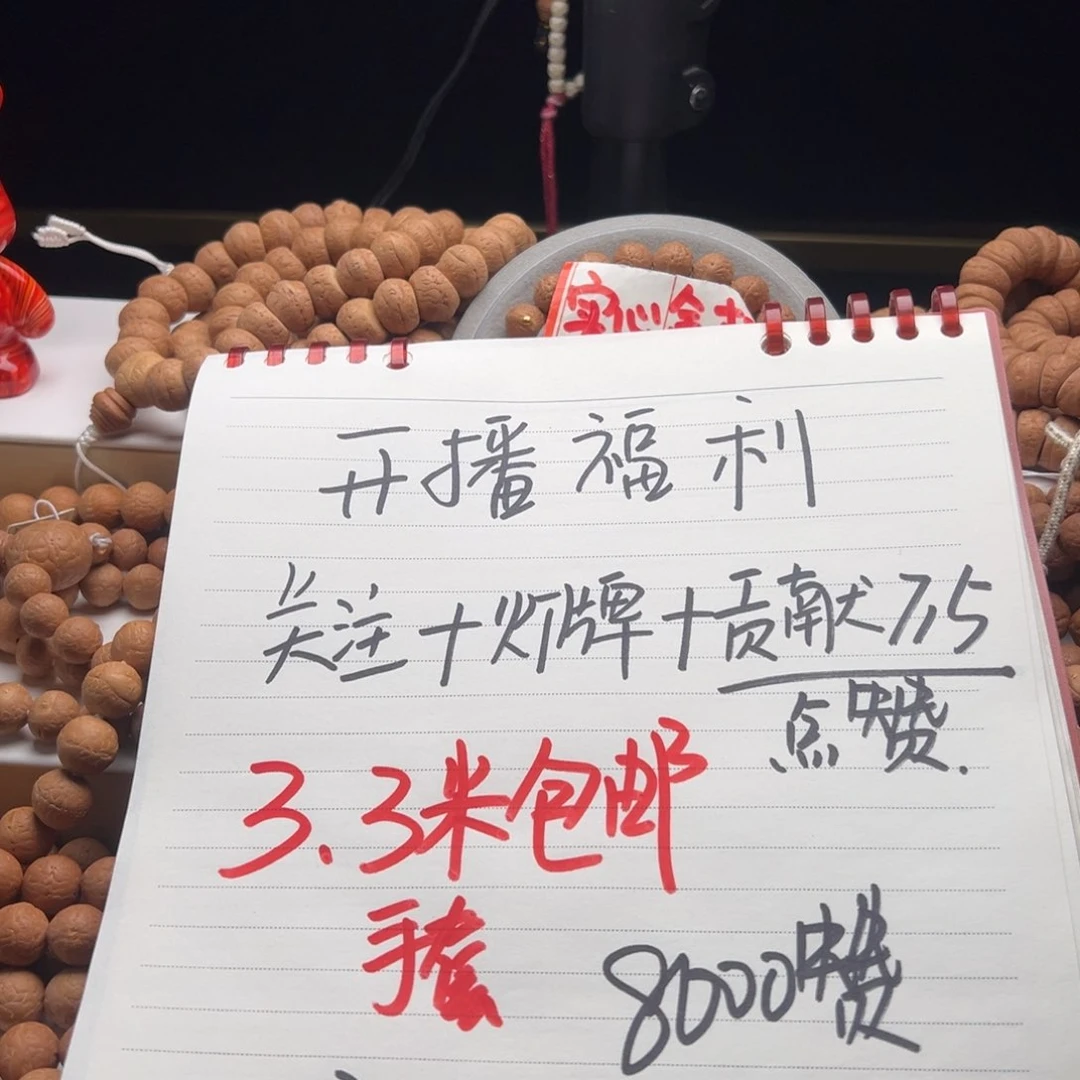 实心金
开播福利
关注+灯牌+贡献
点赞.
3.3米包邮
手套
8000赞